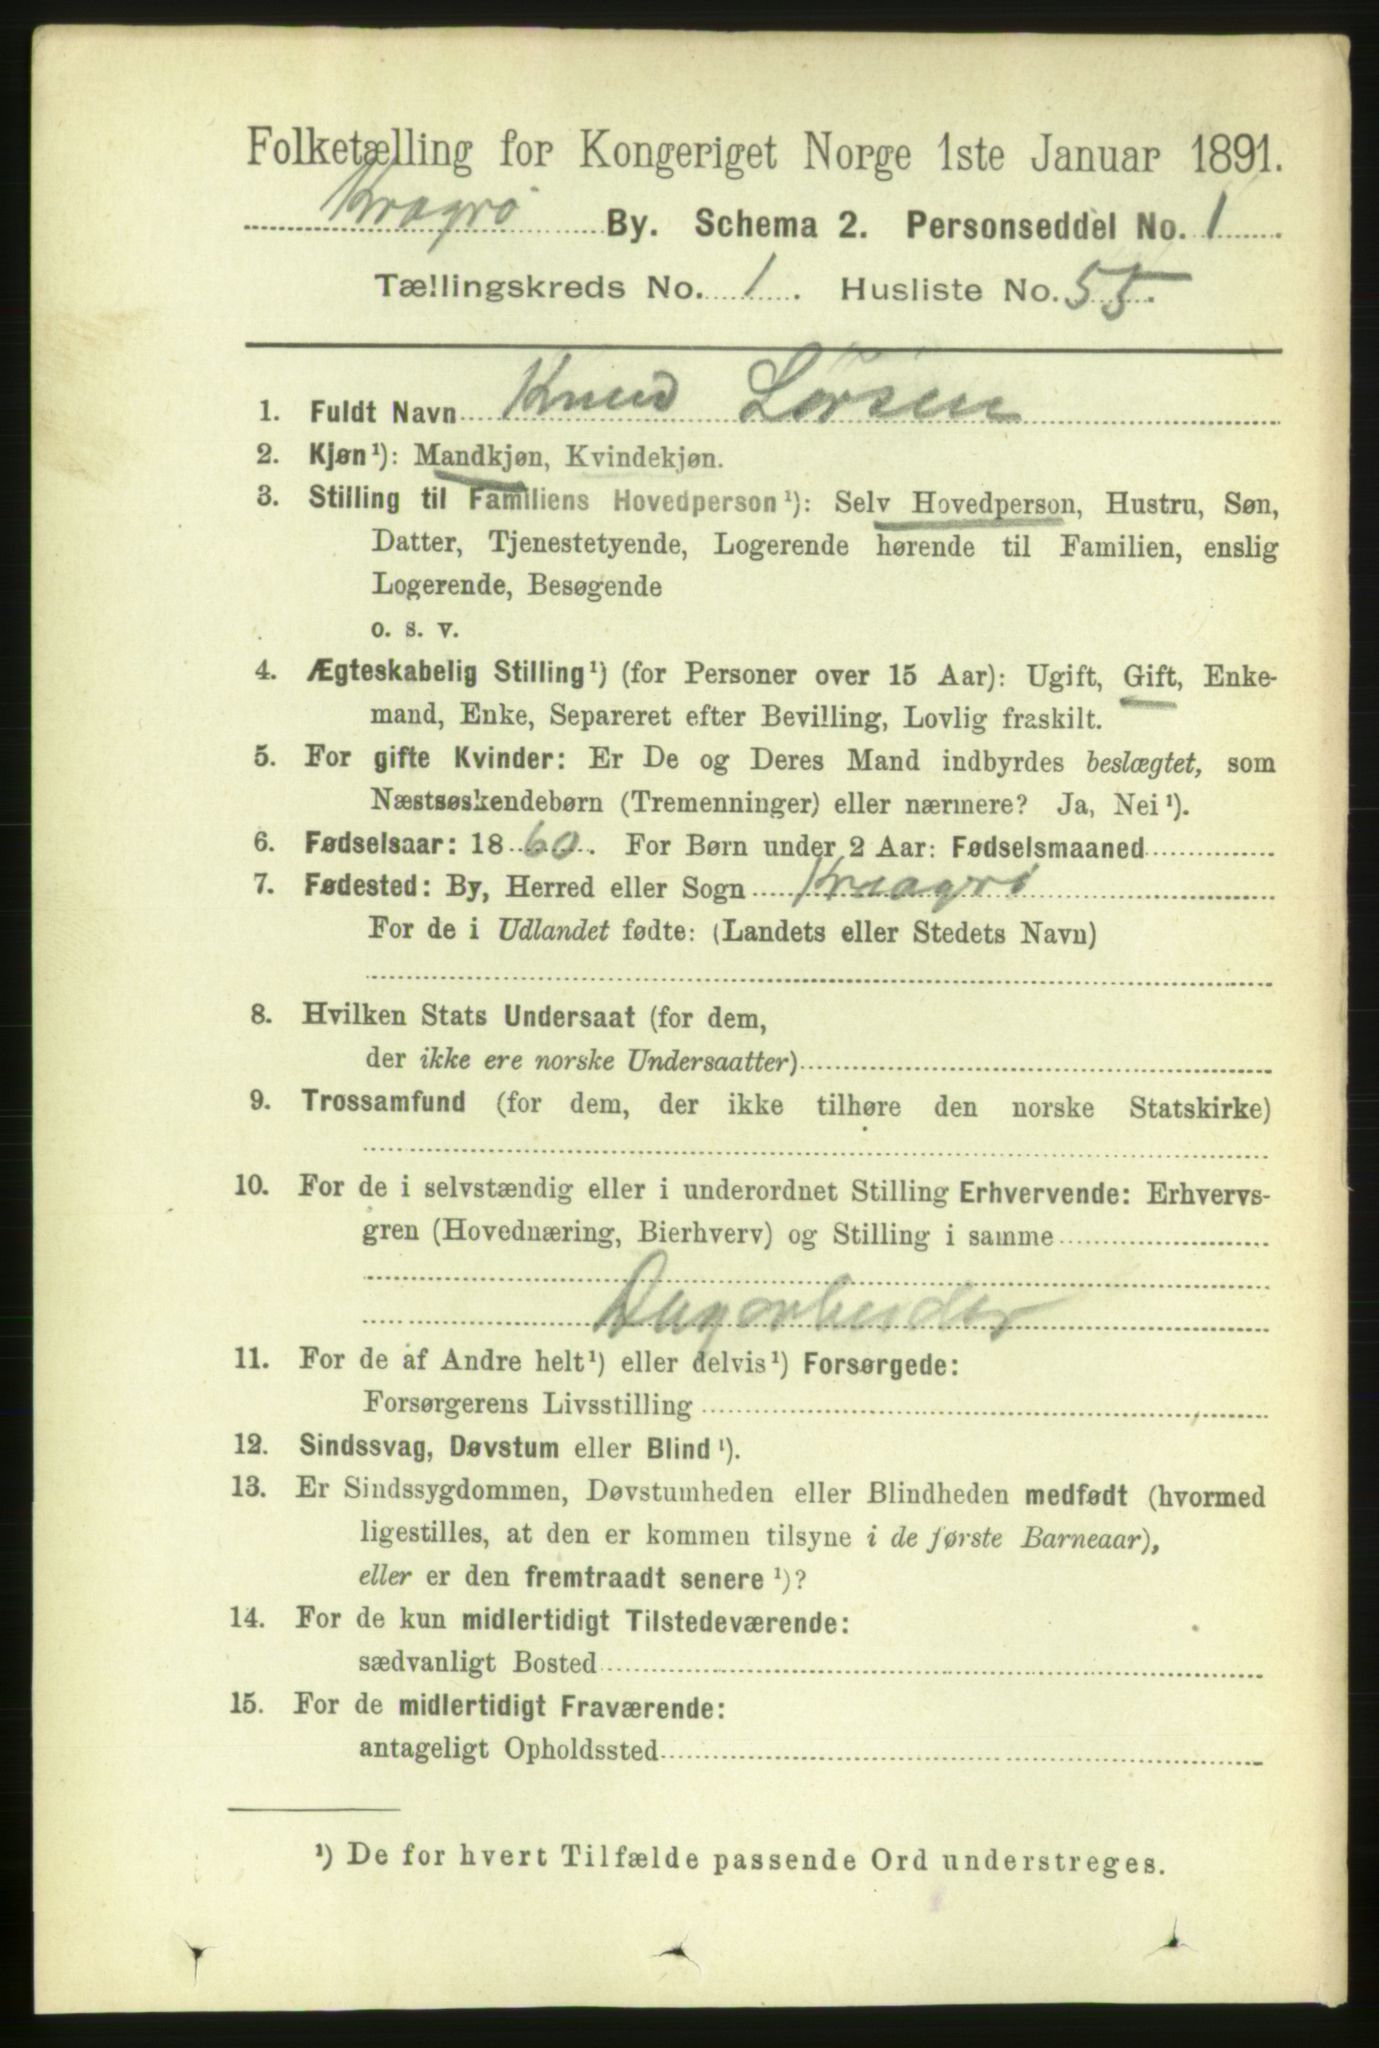 Folketælling for Kongeriget Norge 1ste Januar 1891.
Kragrø By. Schema 2. Personseddel No. 1
Tællingskreds No. 1. Husliste No. 55.
1. Fuldt Navn Knud Larsen
2. Kjøn¹): Mandkjøn, Kvindekjøn.
3. Stilling til Familiens Hovedperson¹): Selv Hovedperson, Hustru, Søn,
Datter, Tjenestetyende, Logerende hørende til Familien, enslig
Logerende, Besøgende
o. s. v.
4. Ægteskabelig Stilling¹) (for Personer over 15 Aar): Ugift, Gift, Enke-
mand, Enke, Separeret efter Bevilling, Lovlig fraskilt.
5. For gifte Kvinder: Er De og Deres Mand indbyrdes beslægtet, som
Næstsøskendebørn (Tremenninger) eller nærmere? Ja, Nei¹).
6. Fødselsaar: 1860. For Børn under 2 Aar: Fødselsmaaned
7. Fødested: By, Herred eller Sogn Kraagrø
For de i Udlandet fødte: (Landets eller Stedets Navn)
8. Hvilken Stats Undersaat (for dem,
der ikke ere norske Undersaatter)
9. Trossamfund (for dem, der ikke tilhøre den norske Statskirke)
10. For de i selvstændig eller i underordnet Stilling Erhvervende: Erhvervs-
gren (Hovednæring, Bierhverv) og Stilling i samme
Dagarbeider
11. For de af Andre helt¹) eller delvis¹) Forsørgede:
Forsørgerens Livsstilling
12. Sindssvag, Døvstum eller Blind¹).
13. Er Sindssygdommen, Døvstumheden eller Blindheden medfødt (hvormed
ligestilles, at den er kommen tilsyne i de første Barneaar),
eller er den fremtraadt senere¹)?
14. For de kun midlertidigt Tilstedeværende:
sædvanligt Bosted
15. For de midlertidigt Fraværende:
antageligt Opholdssted
¹) De for hvert Tilfælde passende Ord understreges.